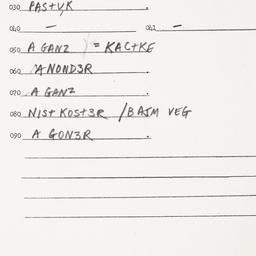 030 PAS+U,K
040 — 042 —
050 A GANZ = KAC+KE
060 ANOND3R
070 A GANZ
080 NIS+ KOS+3R / BAJM VEG
090 A GON3R